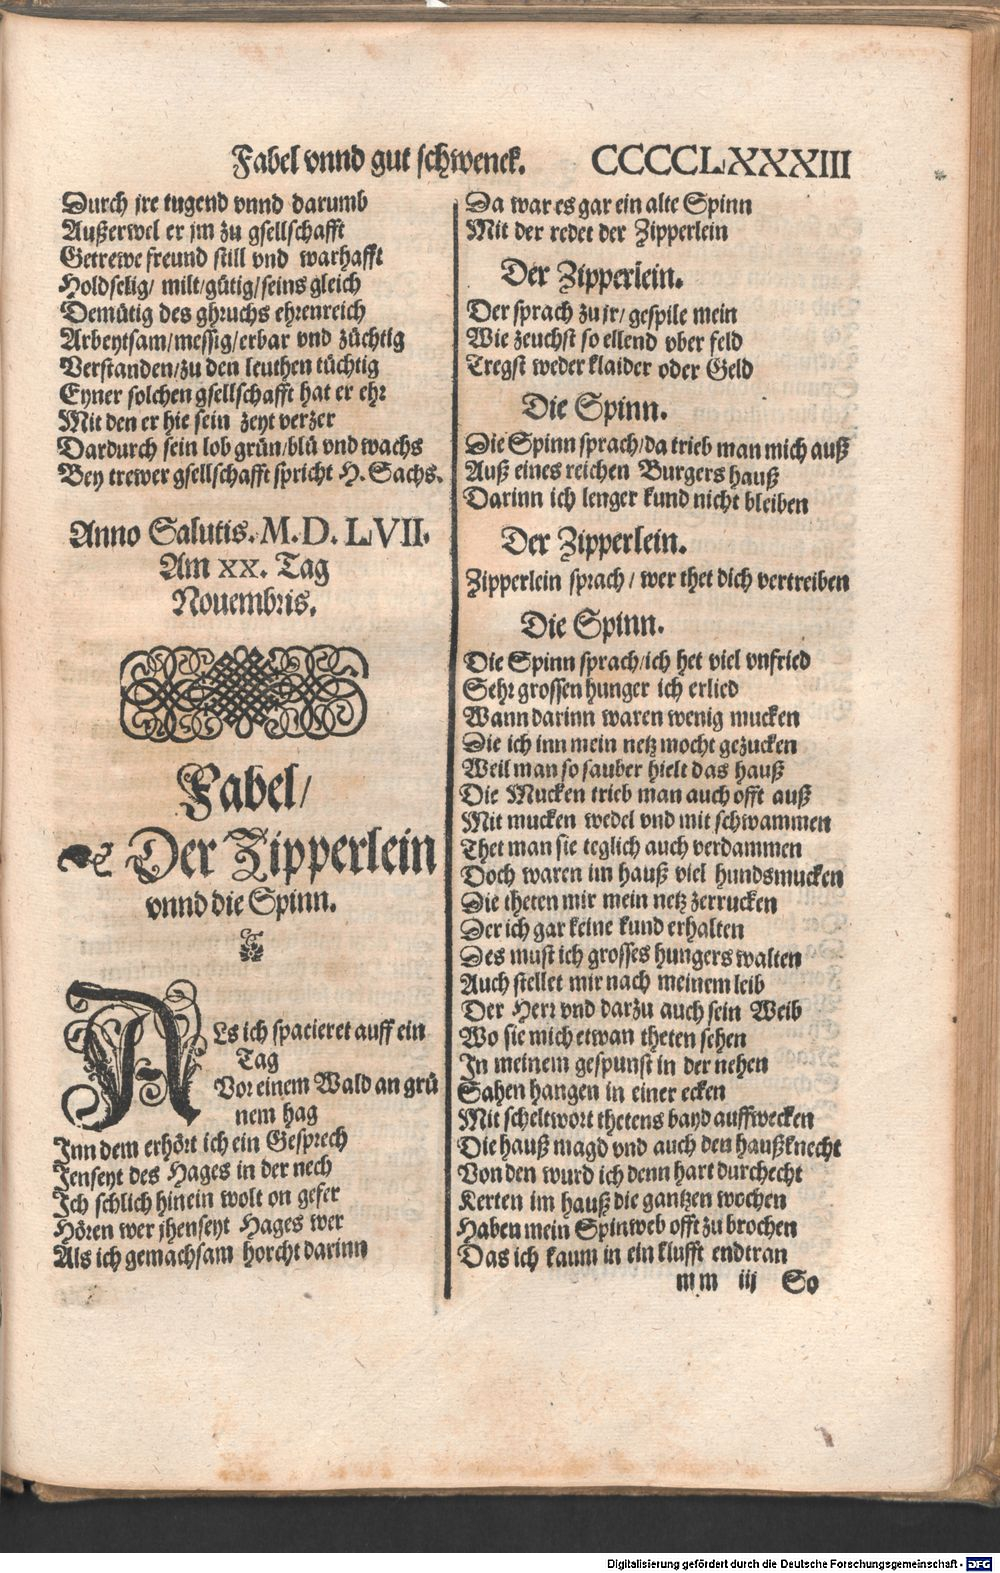 Fabel vnnd gut schwenck. CCCCCLXXXIII
Durch jre tugend vnnd darumb
Außerwel er jm zu gsellschafft
Getrewe freund still vnd warhafft
Holdselig/ milt/gütig/seins gleich
Demütig des ghruchs ehrenreich
Arbeytsam/messig/erbar vnd züchtig
Verstanden/zu den leuthen tüchtig
Eyner solchen gsellschafft hat er ehr
Mit den er hie sein zeyt verzer
Dardurch sein lob grün/blü vnd wachs
Bey trewer gsellschafft spricht H. Sachs.
Anno Salutis. M.D. LVII.
Am XX. Tag
Nouembris.
Fabel/
Der Zipperlein
vnnd die Spinn.
ALs ich spacieret auff ein
Tag
Vor einem Wald an grü
nem hag
Inn dem erhört ich ein Gesprech
Jenseyt des Hages in der nech
Ich schlich hinein wolt on gefer
Hören wer jhenseyt Hages wer
Als ich gemachsam horcht darinn
Da war es gar ein alte Spinn
Mit der redet der Zipperlein
Der Zipperlein.
Der sprach zu jr/ gespile mein
Wie zeuchst so ellend vber feld
Tregst weder klaider oder Geld
Die Spinn.
Die Spinn sprach/da trieb man mich auß
Auß eines reichen Burgers hauß
Darinn ich lenger kund nicht bleiben
Der Zipperlein.
Zipperlein sprach/ wer thet dich vertreiben
Die Spinn.
Die Spinn sprach/ich het viel vnfried
Sehr grossen hunger ich erlied
Wann darinn waren wenig mucken
Die ich inn mein netz mocht gezucken
Weil man so sauber hielt das hauß
Die Mucken trieb man auch offt auß
Mit mucken wedel vnd mit schwammen
Thet man sie teglich auch verdammen
Doch waren im hauß viel hundsmucken
Die theten mir mein netz zerrucken
Der ich gar keine kund erhalten
Des must ich grosses hungers walten
Auch stellet mir nach meinem leib
Der Herr vnd darzu auch sein Weib
Wo sie mich etwan theten sehen
In meinem gespunst in der nehen
Sahen hangen in einer ecken
Mit scheltwort thetens bayd auffwecken
Die hauß magd vnd auch den haußknecht
Von den wurd ich denn hart durchecht
Kerten im hauß die gantzen wochen
Haben mein Spinweb offt zu brochen
Das ich kaum in ein klufft endtran
mm iij So
Digitalisierung gefördert durch die Deutsche Forschungsgemeinschaft - DFG